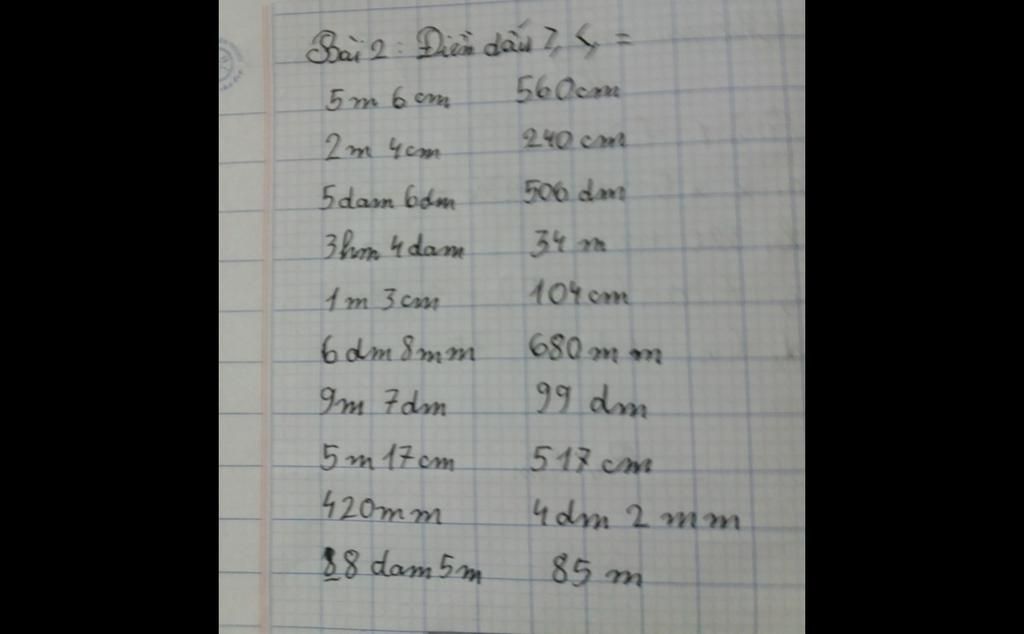 Bài 2: Điền dấu >, <, =
5m 6cm 560cm
2m 4cm 240 cm
5dam 6dm 506 dm
3hm 4dam 34 m
1m 3cm 104cm
6 dm 8mm 680 mm
9m 7dm 99 dm
5m 17cm 517 cm
420mm 4dm 2 mm
8 dam 5m 85 m